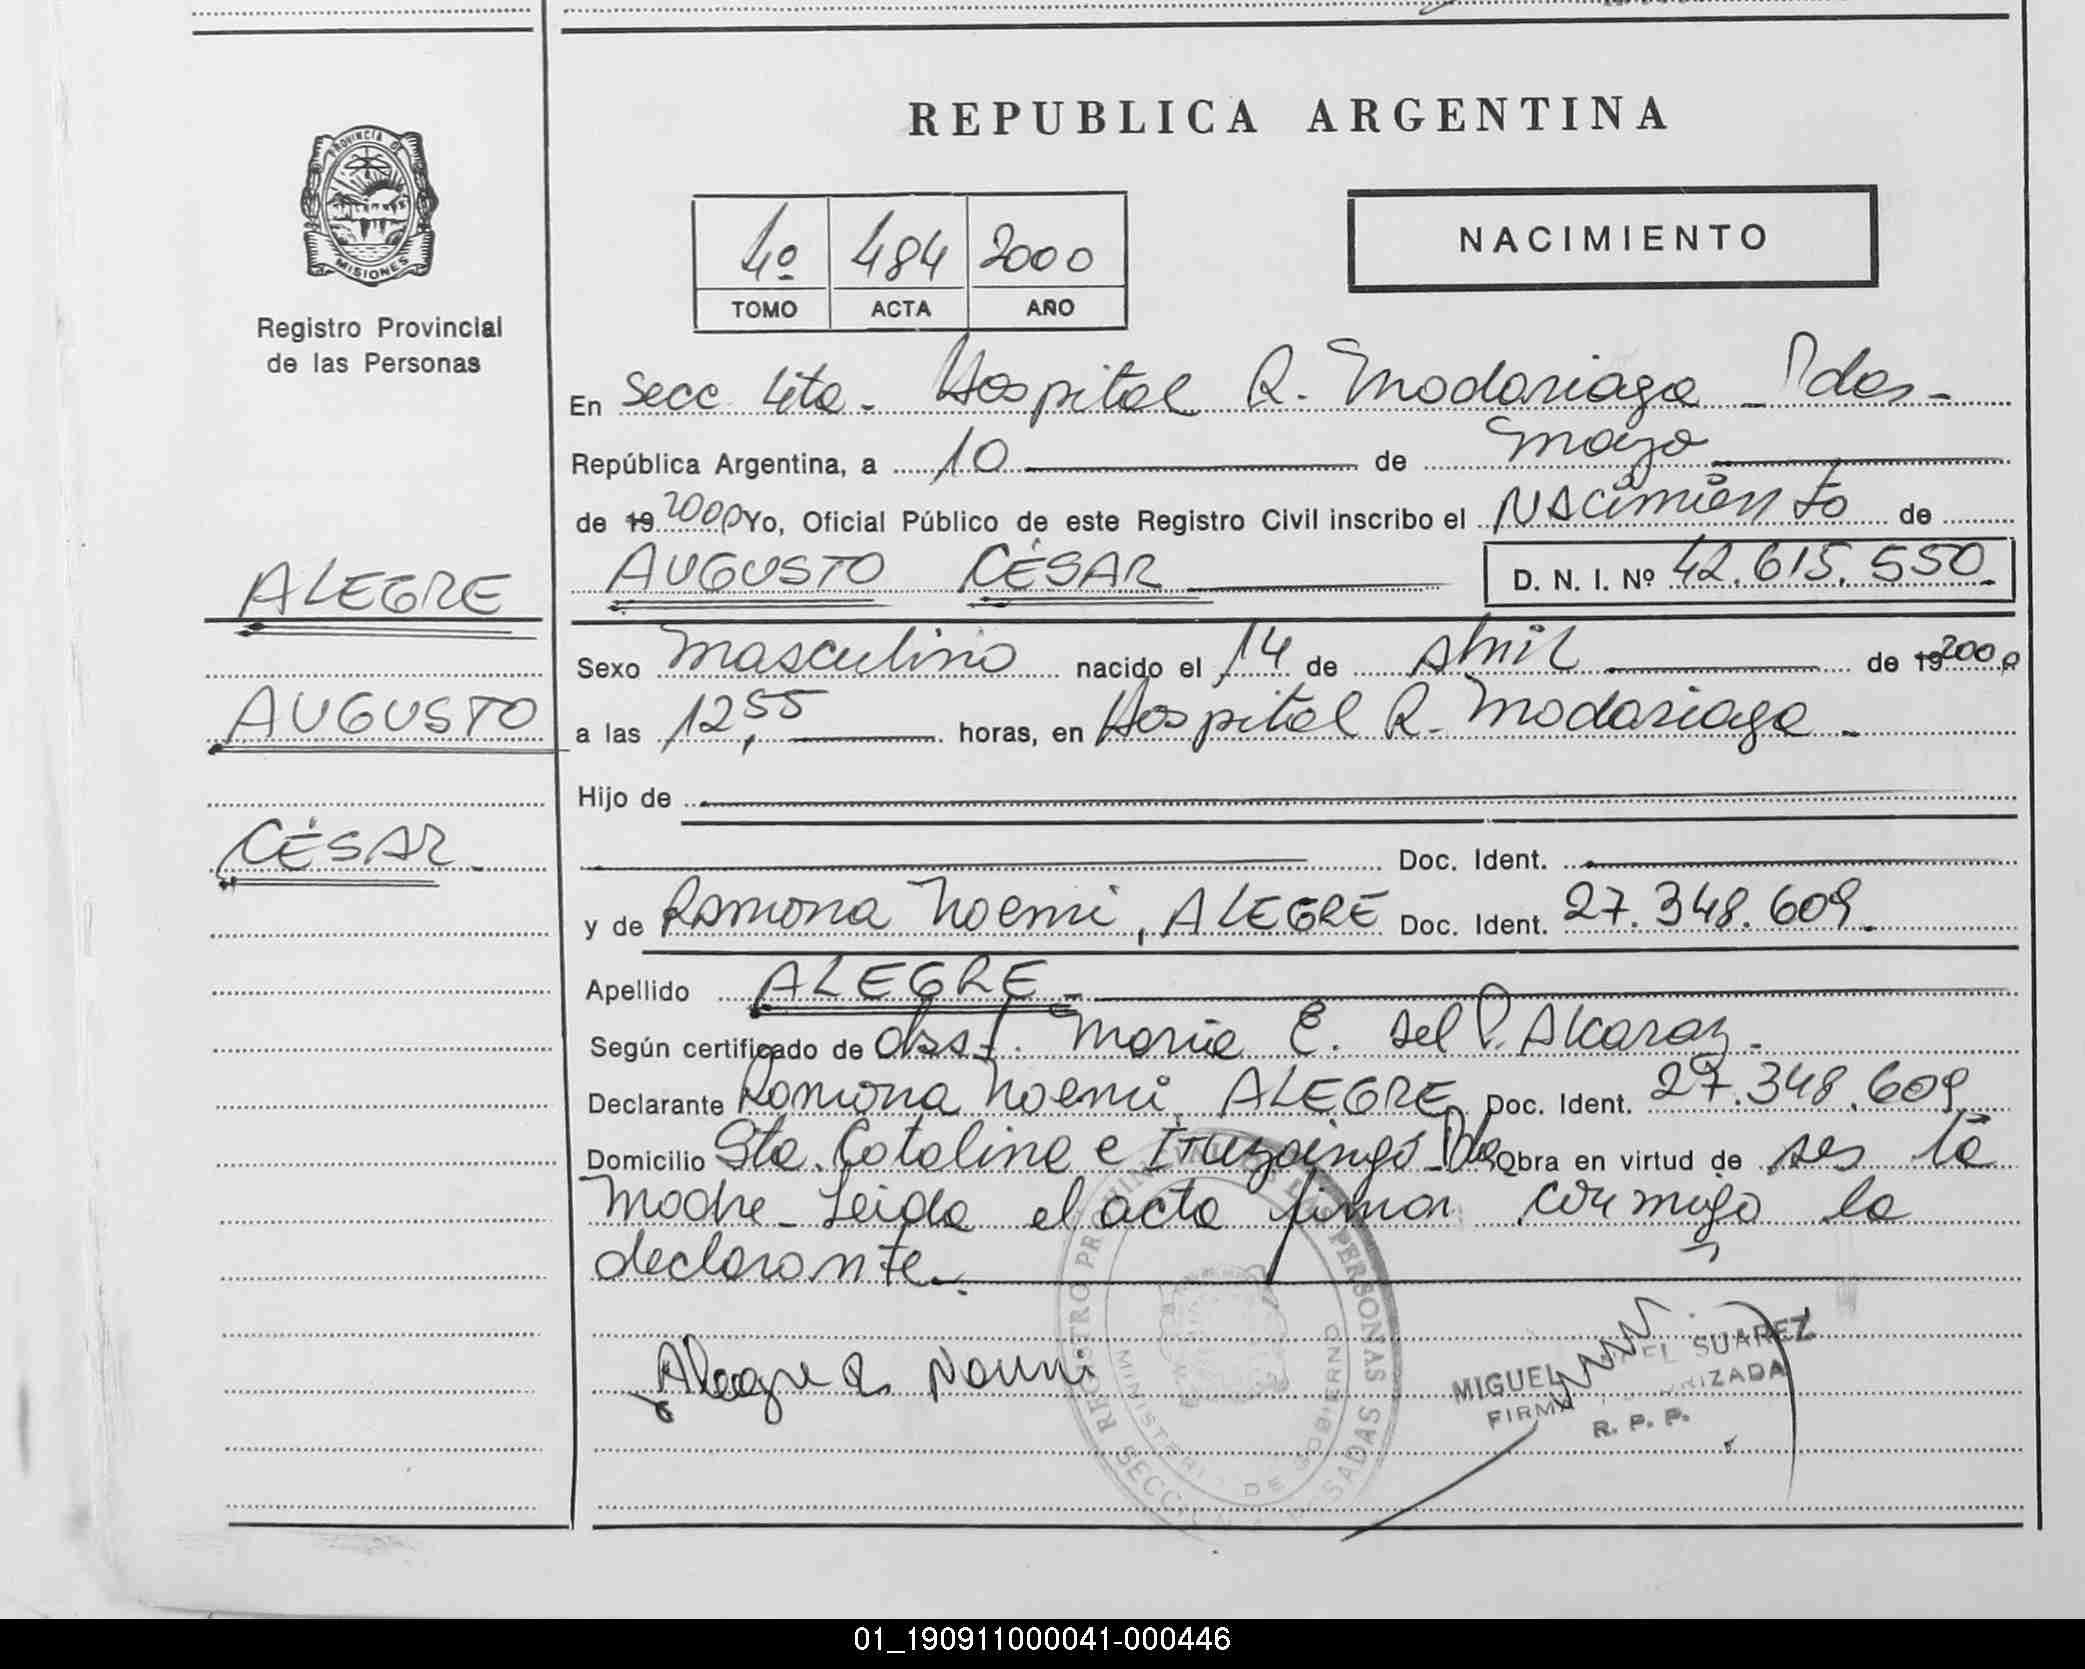 REPUBLICA ARGENTINA
PROVINCIA DE
MISIONES
Registro Provincial
de las Personas
4º 484 2000
TOMO ACTA AÑO
NACIMIENTO
En Secc 4ta. Hospital R. Madariaga - Pdas -
República Argentina, a 10 de Mayo
de 19 2000 Yo, Oficial Público de este Registro Civil inscribo el Nacimiento de
AUGUSTO CÉSAR D. N. I. Nº 42.615.550.
ALEGRE
AUGUSTO
CÉSAR.
Sexo Masculino nacido el 14 de Abril de 19 2000
a las 12,55 horas, en Hospital R. Madariaga -
Hijo de
Doc. Ident.
y de Ramona Noemi, ALEGRE Doc. Ident. 27.348.609.
Apellido ALEGRE -
Según certificado de Obst. Maria E. del P. Alcaraz.
Declarante Ramona Noemi, ALEGRE Doc. Ident. 27.348.609
Domicilio Sta. Catalina e Ituzaingó - Pdas Obra en virtud de ser la
Madre - Leida el acta firman conmigo la
declarante.
Alegre R. Noemi
REGISTRO PROVINCIAL DE LAS PERSONAS
MINISTERIO DE GOBIERNO
SECCION POSADAS
MIGUEL SUAREZ
FIRMA AUTORIZADA
R. P. P.
01_190911000041-000446